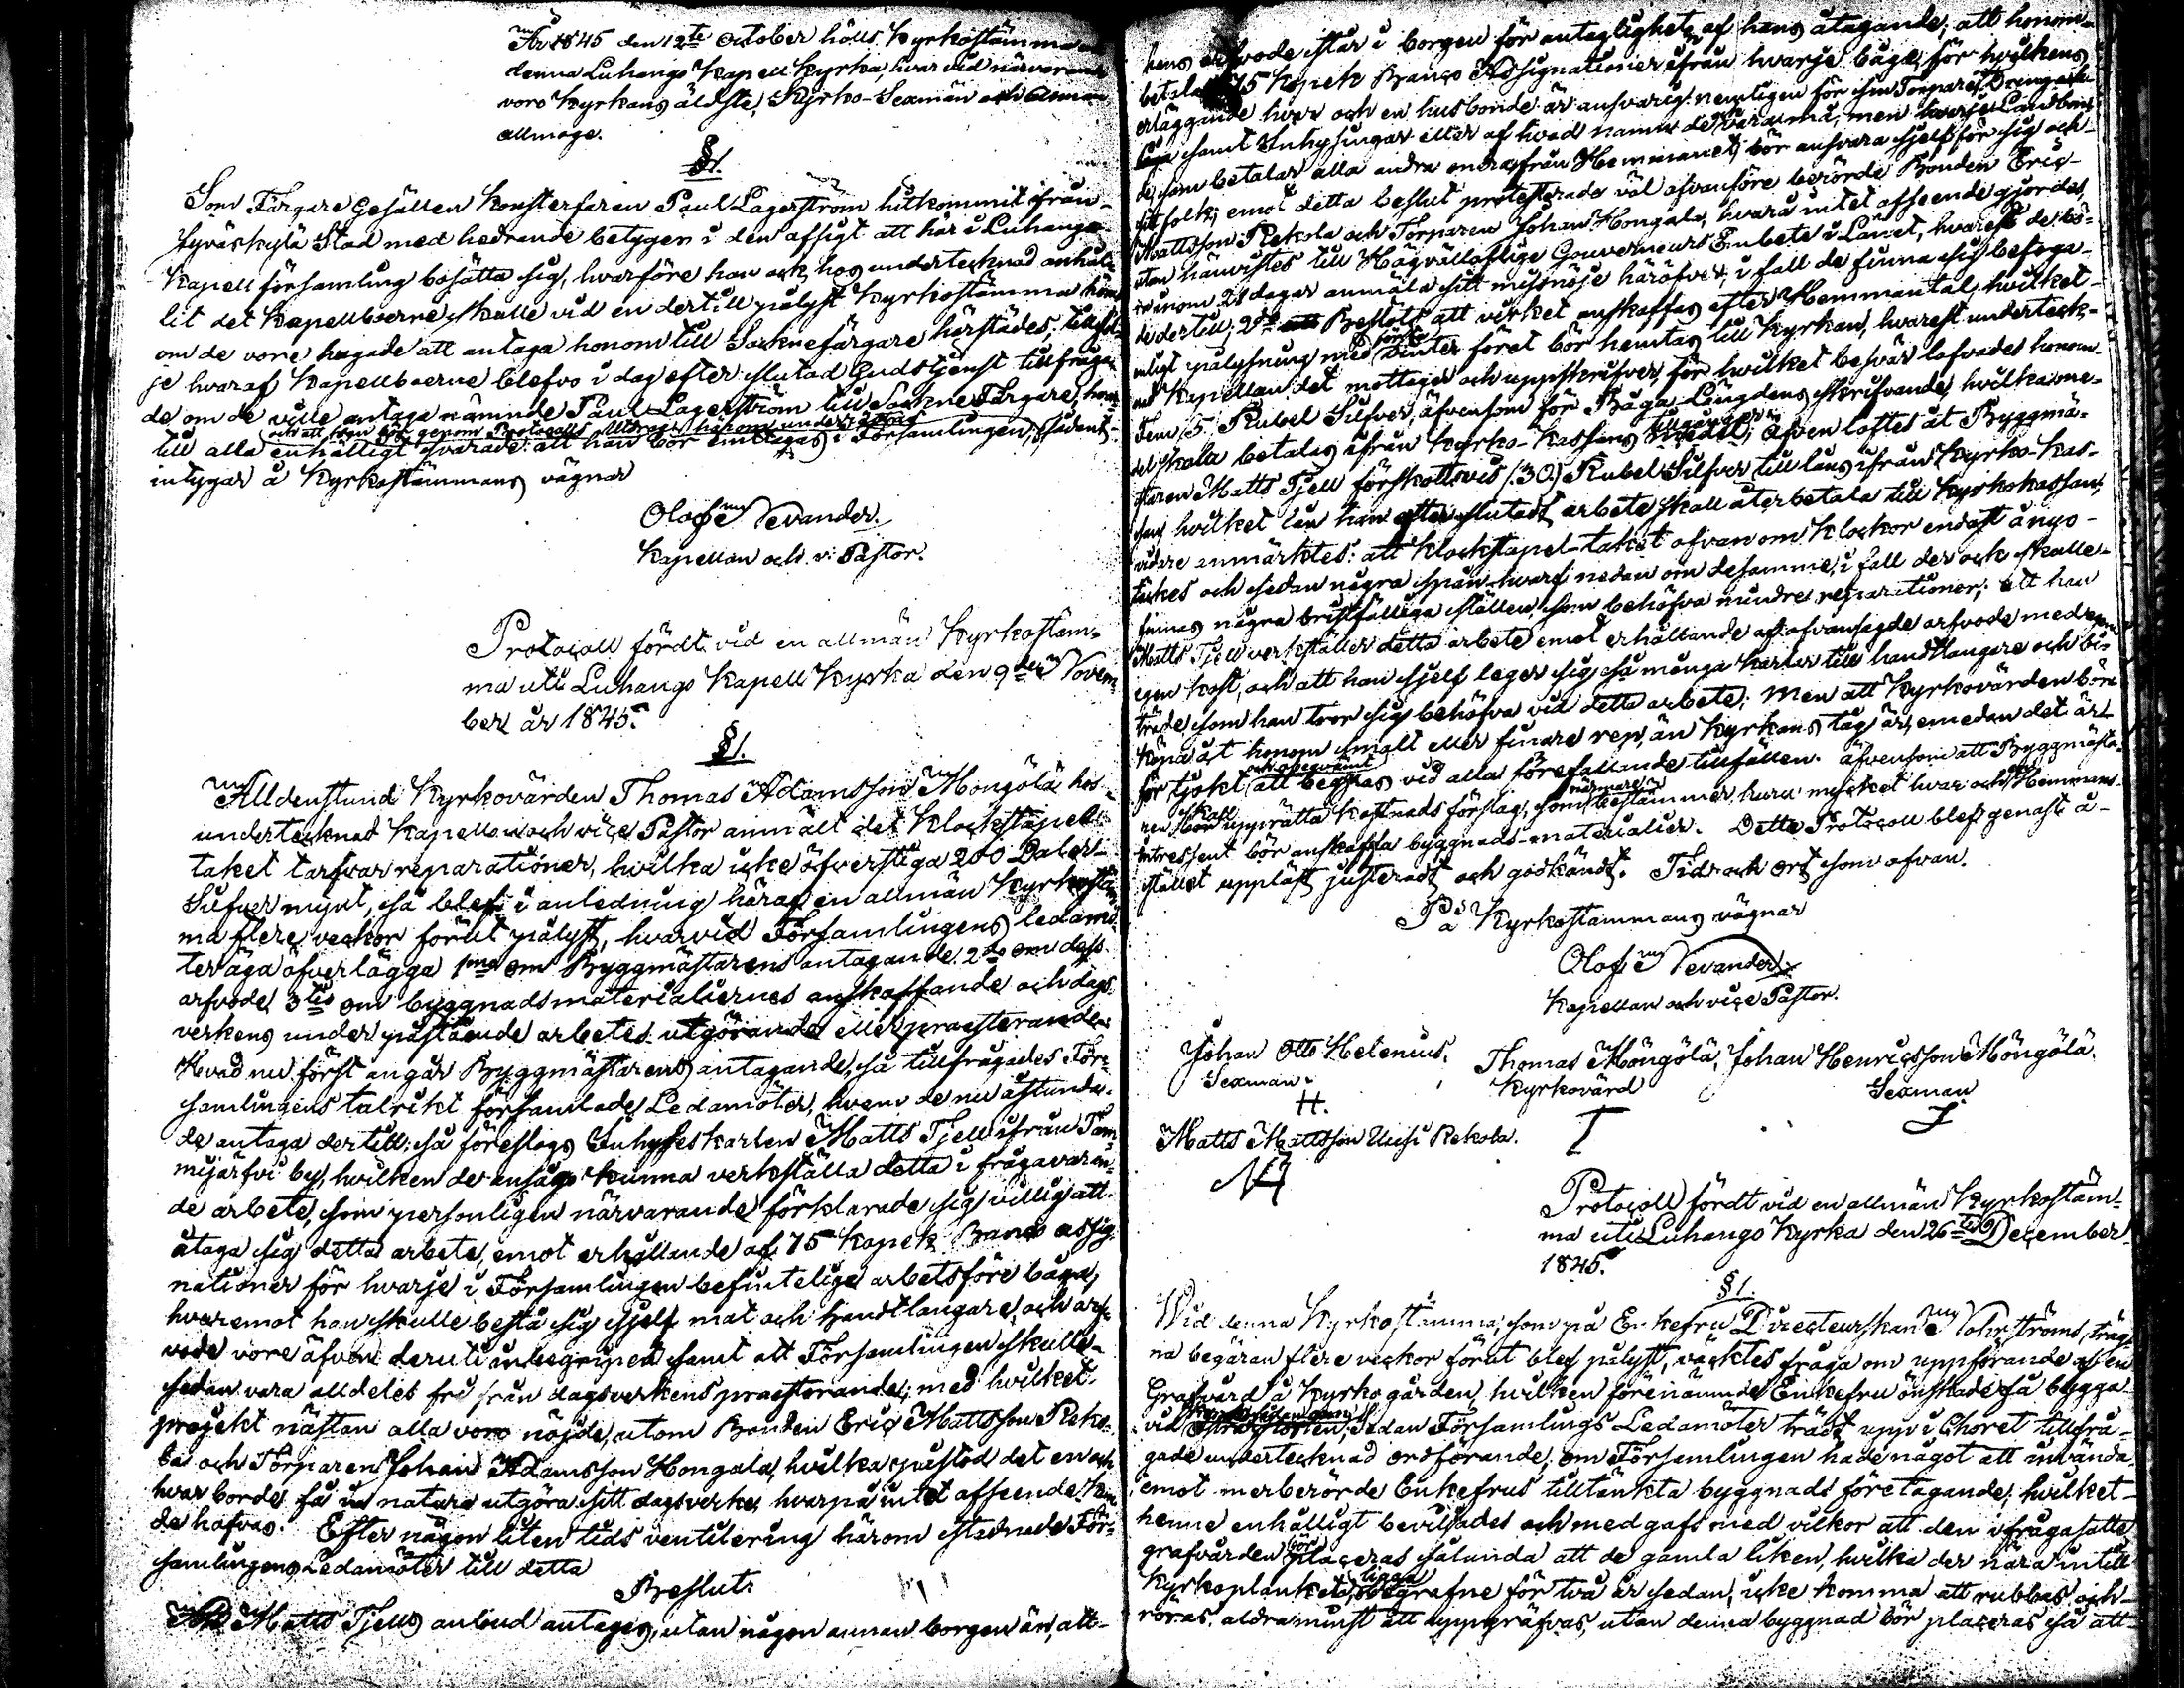 År 1845 den 12te October hölls Kyrkostämma
denna Luhango Kapell Kyrka, hvar vid närvarande
voro Kyrkans äldste, Kyrko-Sexmän och Annan
allmoge.
§ 1.
Som Färgare Gesällen Konsterfaren Paul Lagerström hitkommit ifrån
Jyväskylä Stad med hedrande betygen i den afsigt att här i Luhango
Kapell församling bosätta sig, hvarföre han ock hos undertecknad anhål-
lit det Kapellboerne skulle vid en dertill pålyst Kyrkostämma höras
om de vore hugade att antaga honom till Soknefärgare härstädes; tillföl-
je hvaraf Kapellboerne blefvo i dag efter slutad Gudstjenst tillfråga-
de om de ville antaga nämnde Paul Lagerström till Sokne Färgare,
och att genom Protocolls Utdrag härom underrättas
till alla enhälligt svarade: att han bör emottagas i Församlingen, Sådant
intygar å Kyrkostämmans vägnar
Olof Nevander.
Kapellan och v. Pastor.
Protocoll fördt vid en allmän Kyrkostäm-
ma uti Luhango Kapell Kyrka den 9de Novem-
ber år 1845.
§ 1.
Alldenstund Kyrkovärden Thomas Adamsson Möngölä hos
undertecknad Kapellan och vice Pastor anmält det Klockstapel
taket tarfvar reparationer, hvilka icke öfverstiga 200 Daler
Silfver mynt, så blef i anledning häraf en allmän Kyrkostäm-
ma flere veckor förut pålyst, hvarvid Församlingens ledamö-
ter äga öfverlägga 1mo om Byggmästarens antagande. 2do om dess
arfvode, 3tio om byggnadsmaterialiernes anskaffande och dags-
verkens under påstående arbetes utgörande eller praesterande.
Hvad nu först angår Byggmästarens antagande, så tillfrågades För-
samlingens talrikt församlade Ledamöter, hvem de nu åstunda-
de antaga dertill; så föreslogs Inhyseskarlen Matts Tjell ifrån Tam-
mijärfvi by, hvilken de ansågo kunna verkställa detta i frågavaran-
de arbete, som personligen närvarande förklarade sig villig att
åtaga sig detta arbete, emot erhållande af 75 Kopek Banco assig-
nationer för hvarje i Församlingen befintelige arbetsföre båga,
hvaremot han skulle bestå sig sjelf mat och handtlangare, och arf-
vode vore äfven deruti inbegripet samt att Församlingen skulle
sedan vara alldeles fri från dagsverkens praesterande; med hvilket
projekt nästan alla voro nöjde, utom Bonden Eric Mattsson Reko-
la och Torparen Johan Adamsson Hongala, hvilka påstod det en och
hvar borde få in natura utgöra sitt dagsverke, hvarpå intet afseende kun-
de hafvas. Efter någon liten tids ventilering härom stadnade För-
samlingens Ledamöter till detta
Beslut:
Matts Tjells anbud antages, utan någon annan borgen än, att
hans arfvode står i borgen för antaglighet af hans åtagande, att honom
betalas 75 Kopek Banco Assignationer ifrån hvarje båga, för hvilkens
erläggande hvar och en husbonde är ansvarig nemligen för sin Torpare, Dreng
samt Inhysingar eller af hvad namn de vara må, men hvarje Landbonde
de, som betalar alla andra onera från Hemmanet, bör ansvara sjelf för sig och
sitt folk; emot detta beslut protesterade väl ofvanföre berörde Bonden Eric
Mattsson Rekola och Torparen Johan Hongala, hvarå intet afseende gjordes,
utan hänvistes till Högvälloflige Gouverneurs Embete i Länet, hvarest de bö-
r inom 28 dagar anmäla sitt misnöje häröfver, i fall de finna sig befoga-
de dertill; 2do Beslöts att virket anskaffas efter Hemmantal, hvilket
enligt pålysning med första vinter föret bör hemtas till Kyrkan, hvarest underteck-
nad Kapellan det mottager och uppskrifver, för hvilket besvär lofvades honom
Fem (5) Rubel Silfver, äfvensom för Båga Längdens skrifvande, hvilka me-
del skola betalas ifrån Kyrko-kassans tillgångar; äfven loftes åt Byggmä-
staren Matts Tjell förskottsvis (30) Rubel Silfver till låns ifrån Kyrko-kas-
san, hvilket lån han efter slutadt arbete skall återbetala till Kyrkokassan,
vidare anmärktes: att klockstapel-taket ofvan om klockor endast ånyo
täckes och sedan några spån-hvarf nedan om desamme, i fall der ock skulle
finnas några bristfälliga ställen som behöfva mindre reparationer; att han
Matts Tjell verkställer detta arbete emot erhållande af ofvansagde arfvode med
egen kost, och att han sjelf leger sig så många karlar till handtlangare och bi-
träde som han tror sig behöfva vid detta arbete; Men att Kyrkovärden böre
köpa åt honom smalt eller finare rep, än Kyrkans tåg är, emedan det är
för tjokt och obeqvämt att begagnas vid alla förefallande tillfällen. äfvensom att Byggmästa-
ren skall upprätta kostnads förslag, som närmare bestämmer huru mycket hvar och en Hemmans
intressent bör anskaffa byggnads-materialier. Detta Protocoll blef genast å
stället uppläst justeradt och godkändt. Tid och ort som ofvan.
På Kyrkostämmans vägnar
Olof Nevander
Kapellan och vice Pastor.
Johan Otto Helenius, Thomas Möngölä, Johan Henricsson Möngölä.
Sexman. Kyrkovärd Sexman
H.
Matts Mattsson Uusi Rekola.
Protocoll fördt vid en allmän Kyrkostäm-
ma uti Luhango Kyrka den 26te December
1845.
§ 1.
Wid denna Kyrkostämma, som på Enkefru Directeurskan Nohrströms, träg-
na begäran flere veckor förut blef pålyst, väcktes fråga om uppförande af en
Grafvård å Kyrko gården, hvilken förenämnde Enkefru önskade få bygga
vid Sedan Församlings Ledamöter trädt upp i Choret tillfrå-
gade undertecknad ordförande, om Församlingen hade något att invända
emot merberörde Enkefrus tilltänkta byggnads företagande; hvilket
henne enhälligt beviljades och medgafs med vilkor att den ifrågasatte
grafvården bör placeras sålunda att de gamla liken, hvilka der nära intill
Kyrkoplanket, ligga begrafne för två år sedan, icke komma att rubbas och
röras, aldraminst att uppgräfvas, utan denna byggnad bör placeras så att